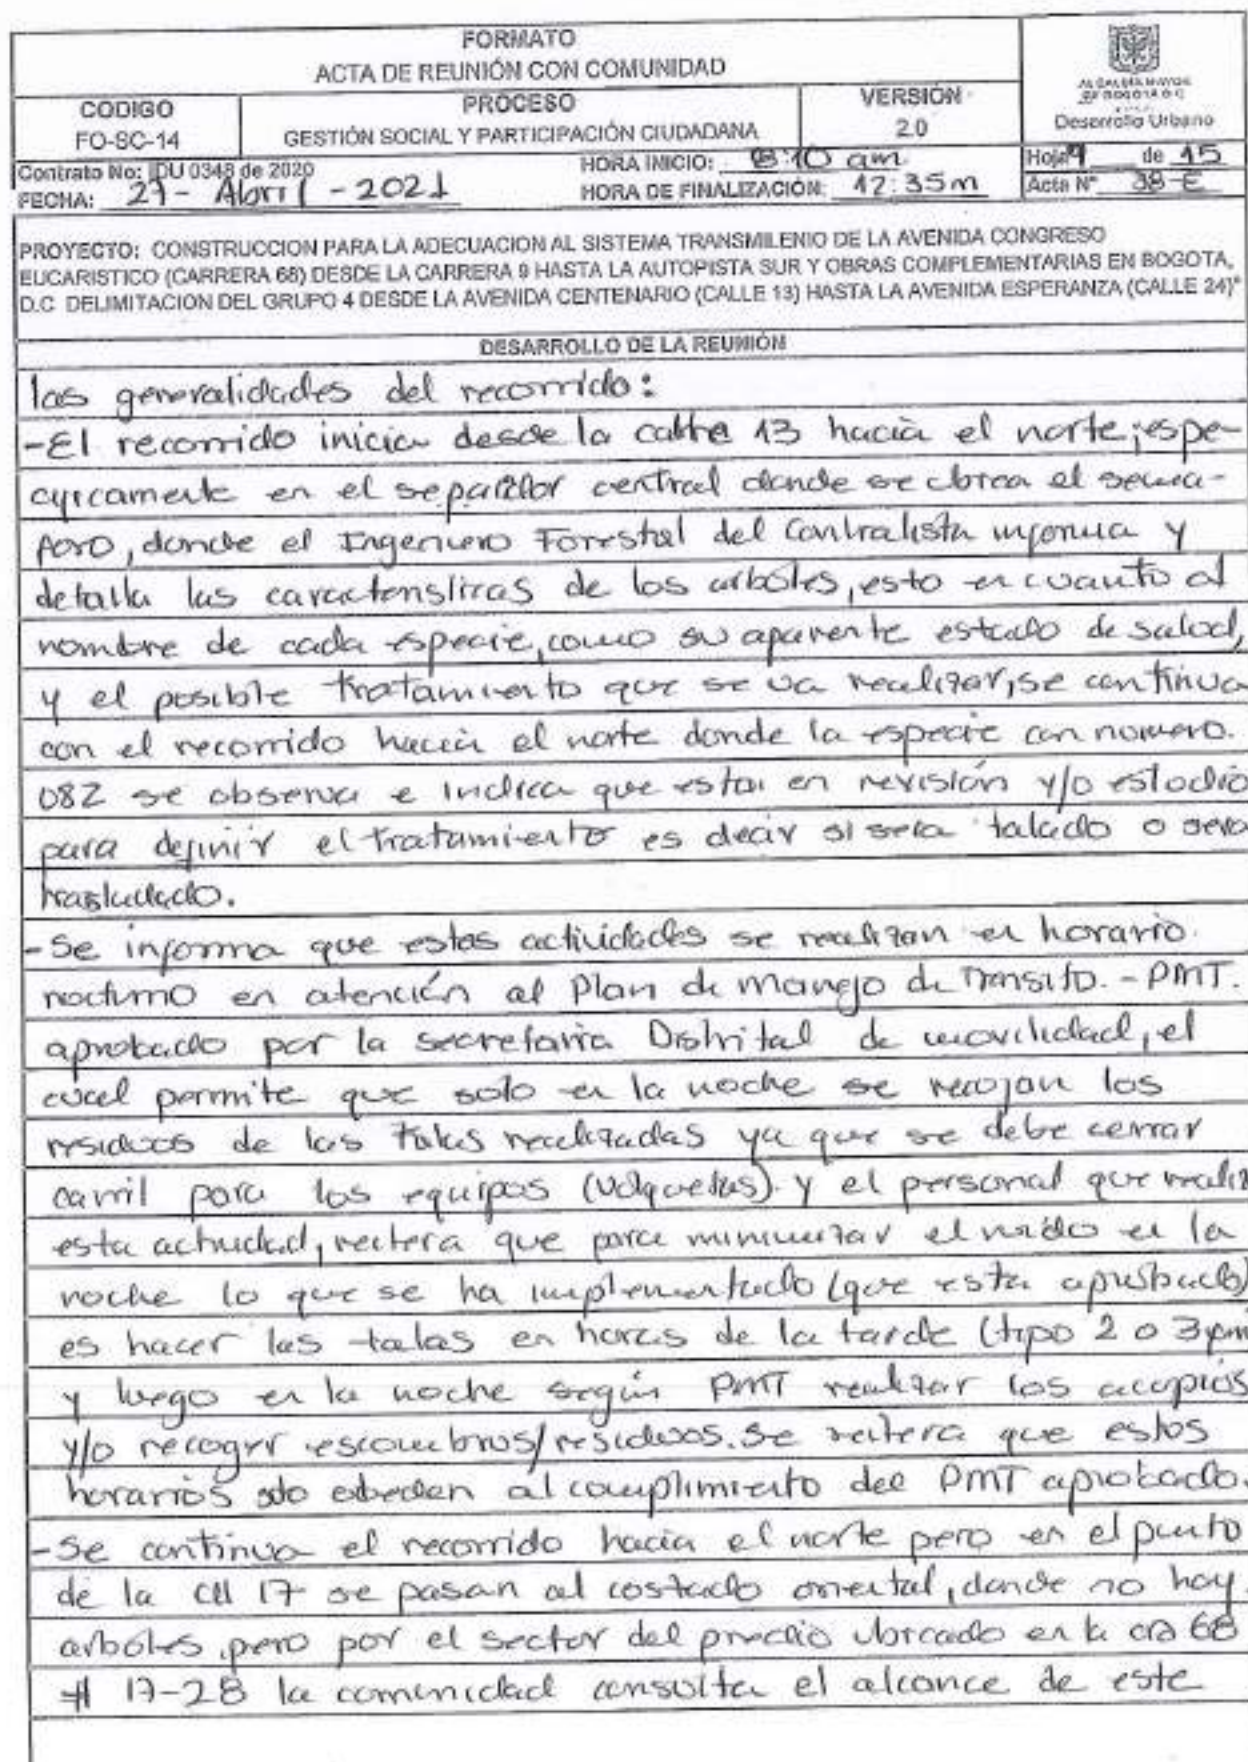 FORMATO
ACTA DE REUNIÓN CON COMUNIDAD
ALCALDÍA MAYOR
DE BOGOTÁ D.C.
Desarrollo Urbano
CODIGO
FO-SC-14
PROCESO
GESTIÓN SOCIAL Y PARTICIPACIÓN CIUDADANA
VERSIÓN
2.0
Contrato No: IDU 0348 de 2020
FECHA: 27 - Abril - 2021
HORA INICIO: 8:10 am
HORA DE FINALIZACIÓN: 12:35m
Hoja de 15
Acta N° 38-E
PROYECTO: CONSTRUCCION PARA LA ADECUACION AL SISTEMA TRANSMILENIO DE LA AVENIDA CONGRESO
EUCARISTICO (CARRERA 68) DESDE LA CARRERA 9 HASTA LA AUTOPISTA SUR Y OBRAS COMPLEMENTARIAS EN BOGOTA,
D.C DELIMITACION DEL GRUPO 4 DESDE LA AVENIDA CENTENARIO (CALLE 13) HASTA LA AVENIDA ESPERANZA (CALLE 24)"
DESARROLLO DE LA REUNIÓN
las generalidades del recorrido:
-El recorrido inicia desde la calle 13 hacia el norte; espe-
cificamente en el separador central donde se ubica el sema-
foro, donde el Ingeniero Forestal del Contratista informa y
detalla las caracteristicas de los arboles, esto en cuanto al
nombre de cada especie, como su aparente estado de salud,
y el posible tratamiento que se va realizar, se continua
con el recorrido hacia el norte donde la especie con numero.
082 se observa e indica que esta en revisión y/o estudio
para definir el tratamiento es decir si sera talado o sera
trasladado.
-Se informa que estas actividades se realizan en horario.
nocturno en atención al Plan de Manejo de Transito. - PMT.
aprobado por la secretaria Distrital de movilidad, el
cual permite que solo en la noche se recojan los
residuos de las talas realizadas ya que se debe cerrar
carril para los equipos (volquetas) y el personal que realiz
esta actividad, reitera que para minimizar el ruido en la
noche lo que se ha implementado (que esta aprobado)
es hacer las talas en horas de la tarde (tipo 2 o 3pm
y luego en la noche según PMT realizar los acopios
y/o recoger escombros/residuos. Se reitera que estos
horarios solo obedecen al cumplimiento del PMT aprobado.
-Se continua el recorrido hacia el norte pero en el punto
de la Cll 17 se pasan al costado oriental, donde no hay.
arboles, pero por el sector del predio ubicado en la cra 68
# 17-28 la comunidad consulta el alcance de este